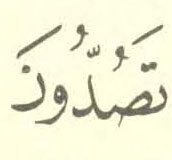 تَصُدُّونَ